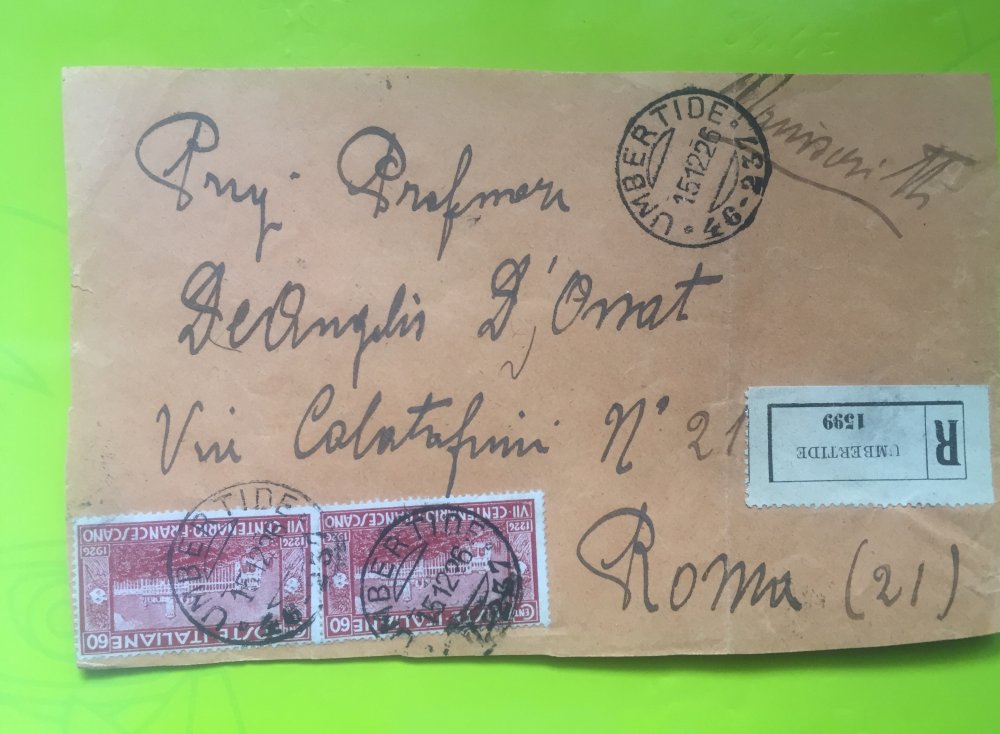 Preg. Professore
De Angelis D'Ossat
Via Calatafimi N° 21
Roma (21)
UMBERTIDE
15.12.26
46-23
R
UMBERTIDE
1599
VII CENTENARIO FRANCESCANO
1226
1926
POSTE ITALIANE
60
UMBERTIDE
15.12.26
VII CENTENARIO FRANCESCANO
1226
1926
POSTE ITALIANE
CENT
60
UMBERTIDE
15.12.26